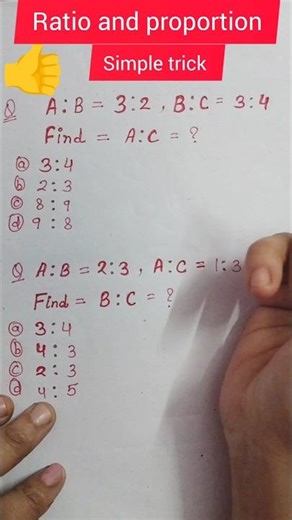 Ratio and proportion
Simple trick
Q A:B = 3:2 , B:C = 3:4
Find = A:C = ?
a 3:4
b 2:3
c 8:9
d 9:8
Q A:B = 2:3 , A:C = 1:3
Find = B:C = ?
a 3:4
b 4:3
c 2:3
d 4:5